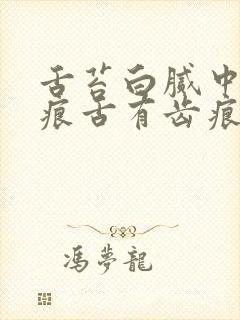 舌苔白腻中
痕舌有齿痕
馮夢龍